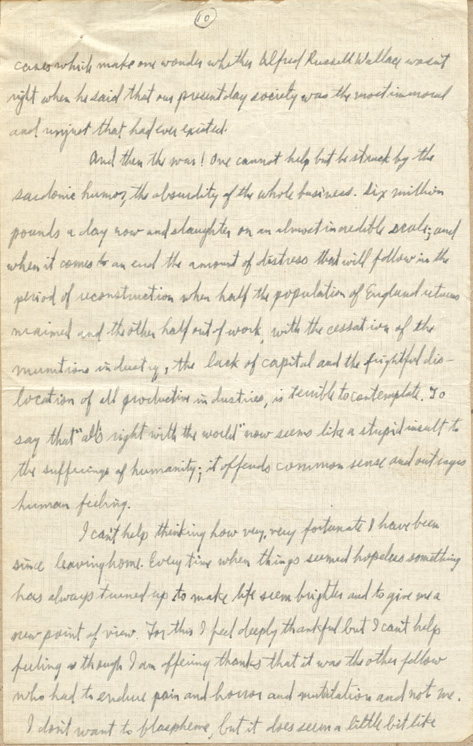 10
cases which make one wonder whether Alfred Russell Wallace wasn't
right when he said that our present day society was the most immoral
and unjust that had ever existed.
And then the war! One cannot help but be struck by the
sardonic humor, the absurdity of the whole business. Six million
pounds a day now and slaughter on an almost incredible scale; and
when it comes to an end the amount of distress that will follow in the
period of reconstruction when half the population of England returns
maimed and the other half out of work, with the cessation of the
munitions industry, the lack of capital and the frightful dis-
location of all productive industries, is terrible to contemplate. To
say that "all's right with the world" now seems like a stupid insult to
the sufferings of humanity; it offends common sense and outrages
human feeling.
I can't help thinking how very, very fortunate I have been
since leaving home. Every time when things seemed hopeless something
has always turned up to make life seem brighter and to give me a
new point of view. For this I feel deeply thankful but I can't help
feeling as though I am offering thanks that it was the other fellow
who had to endure pain and horror and mutilation and not me.
I don't want to blaspheme, but it does seem a little bit like